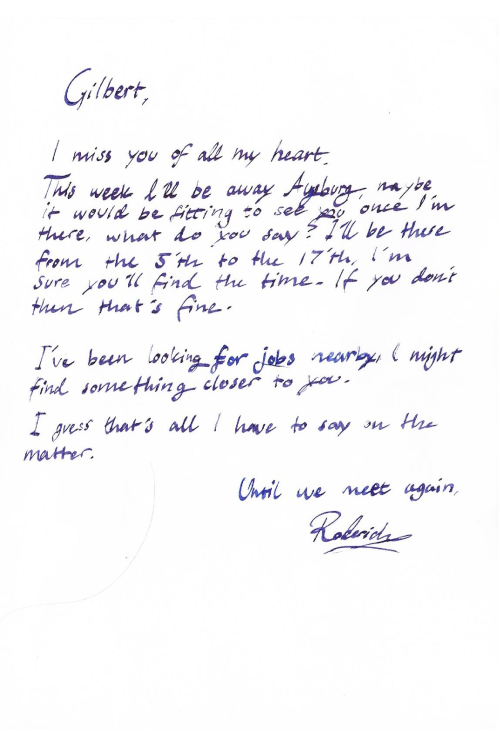 Gilbert,
I miss you of all my heart.
This week I'll be away Augsburg, maybe
it would be fitting to see you once I'm
there, what do you say? I'll be there
from the 5'th to the 17'th, I'm
sure you'll find the time. If you don't
then that's fine.
I've been looking for jobs nearby, I might
find something closer to you.
I guess that's all I have to say on the
matter.
Until we meet again,
Roderich